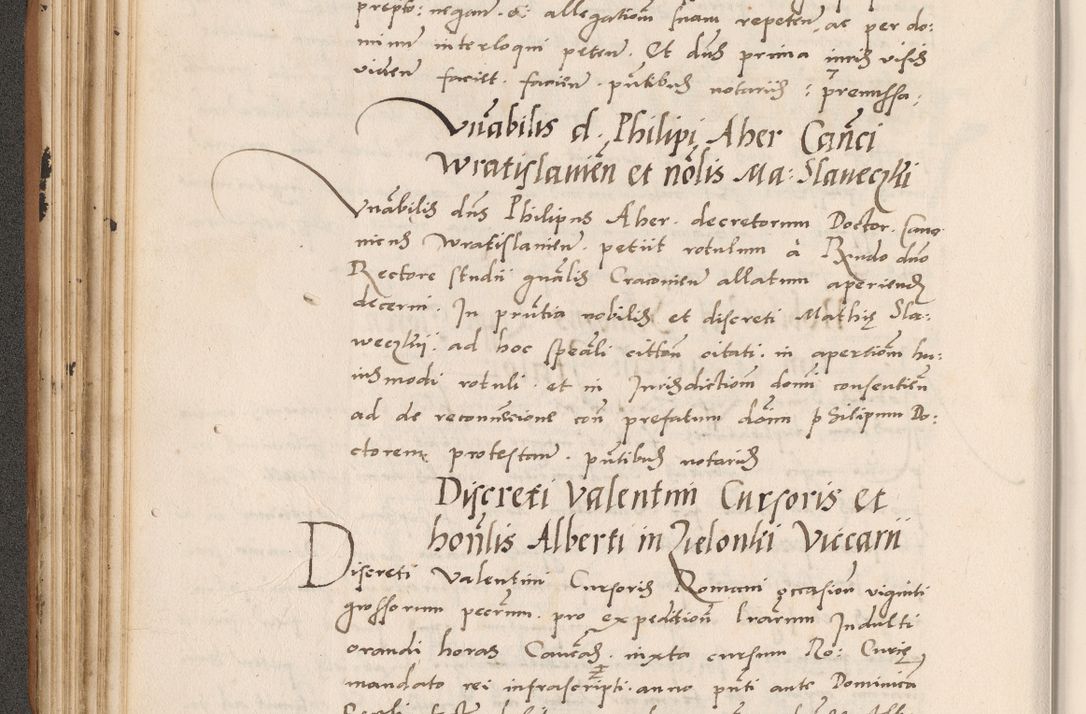 prepto: negan. &: allegationem suam repeten. ac per do:
minum interloqui peten. Et dns prima iuris visis
viden faciet. facien. pntibus notariis: premissa:
Vnabilis d. Philipi Aher Canci
Wratislauien et nolis Ma: Slaueczki
Vnabilis dns Philipus Aher. decretorum Doctor. Cano
nicus Wratislauien. petiit rotulum à Rndo dno
Rectore studii gnalis Cracouien allatum aperiendum
decerni. In pntia nobilis et discreti Mathię Sla:
weczkij. ad hoc speali cittan citati. in apertiom hu:
iusmodi rotuli. et in Jurisdictiom domi consentien
ad de reconuencione con prefatum doim philipum Do:
ctorem protestan. pntibus notariis
Discreti Valentini Cursoris et
honlis Alberti in Zielonki Viccarii
Discreti Valentini Cursoris Romani occasion viginti
grossorum pecnum. pro expedition lrarum Indulti
orandi horas Cancas. iuxta cursum Ro: Curię
mandato rei infrascripti. anno pnti ante Dominica